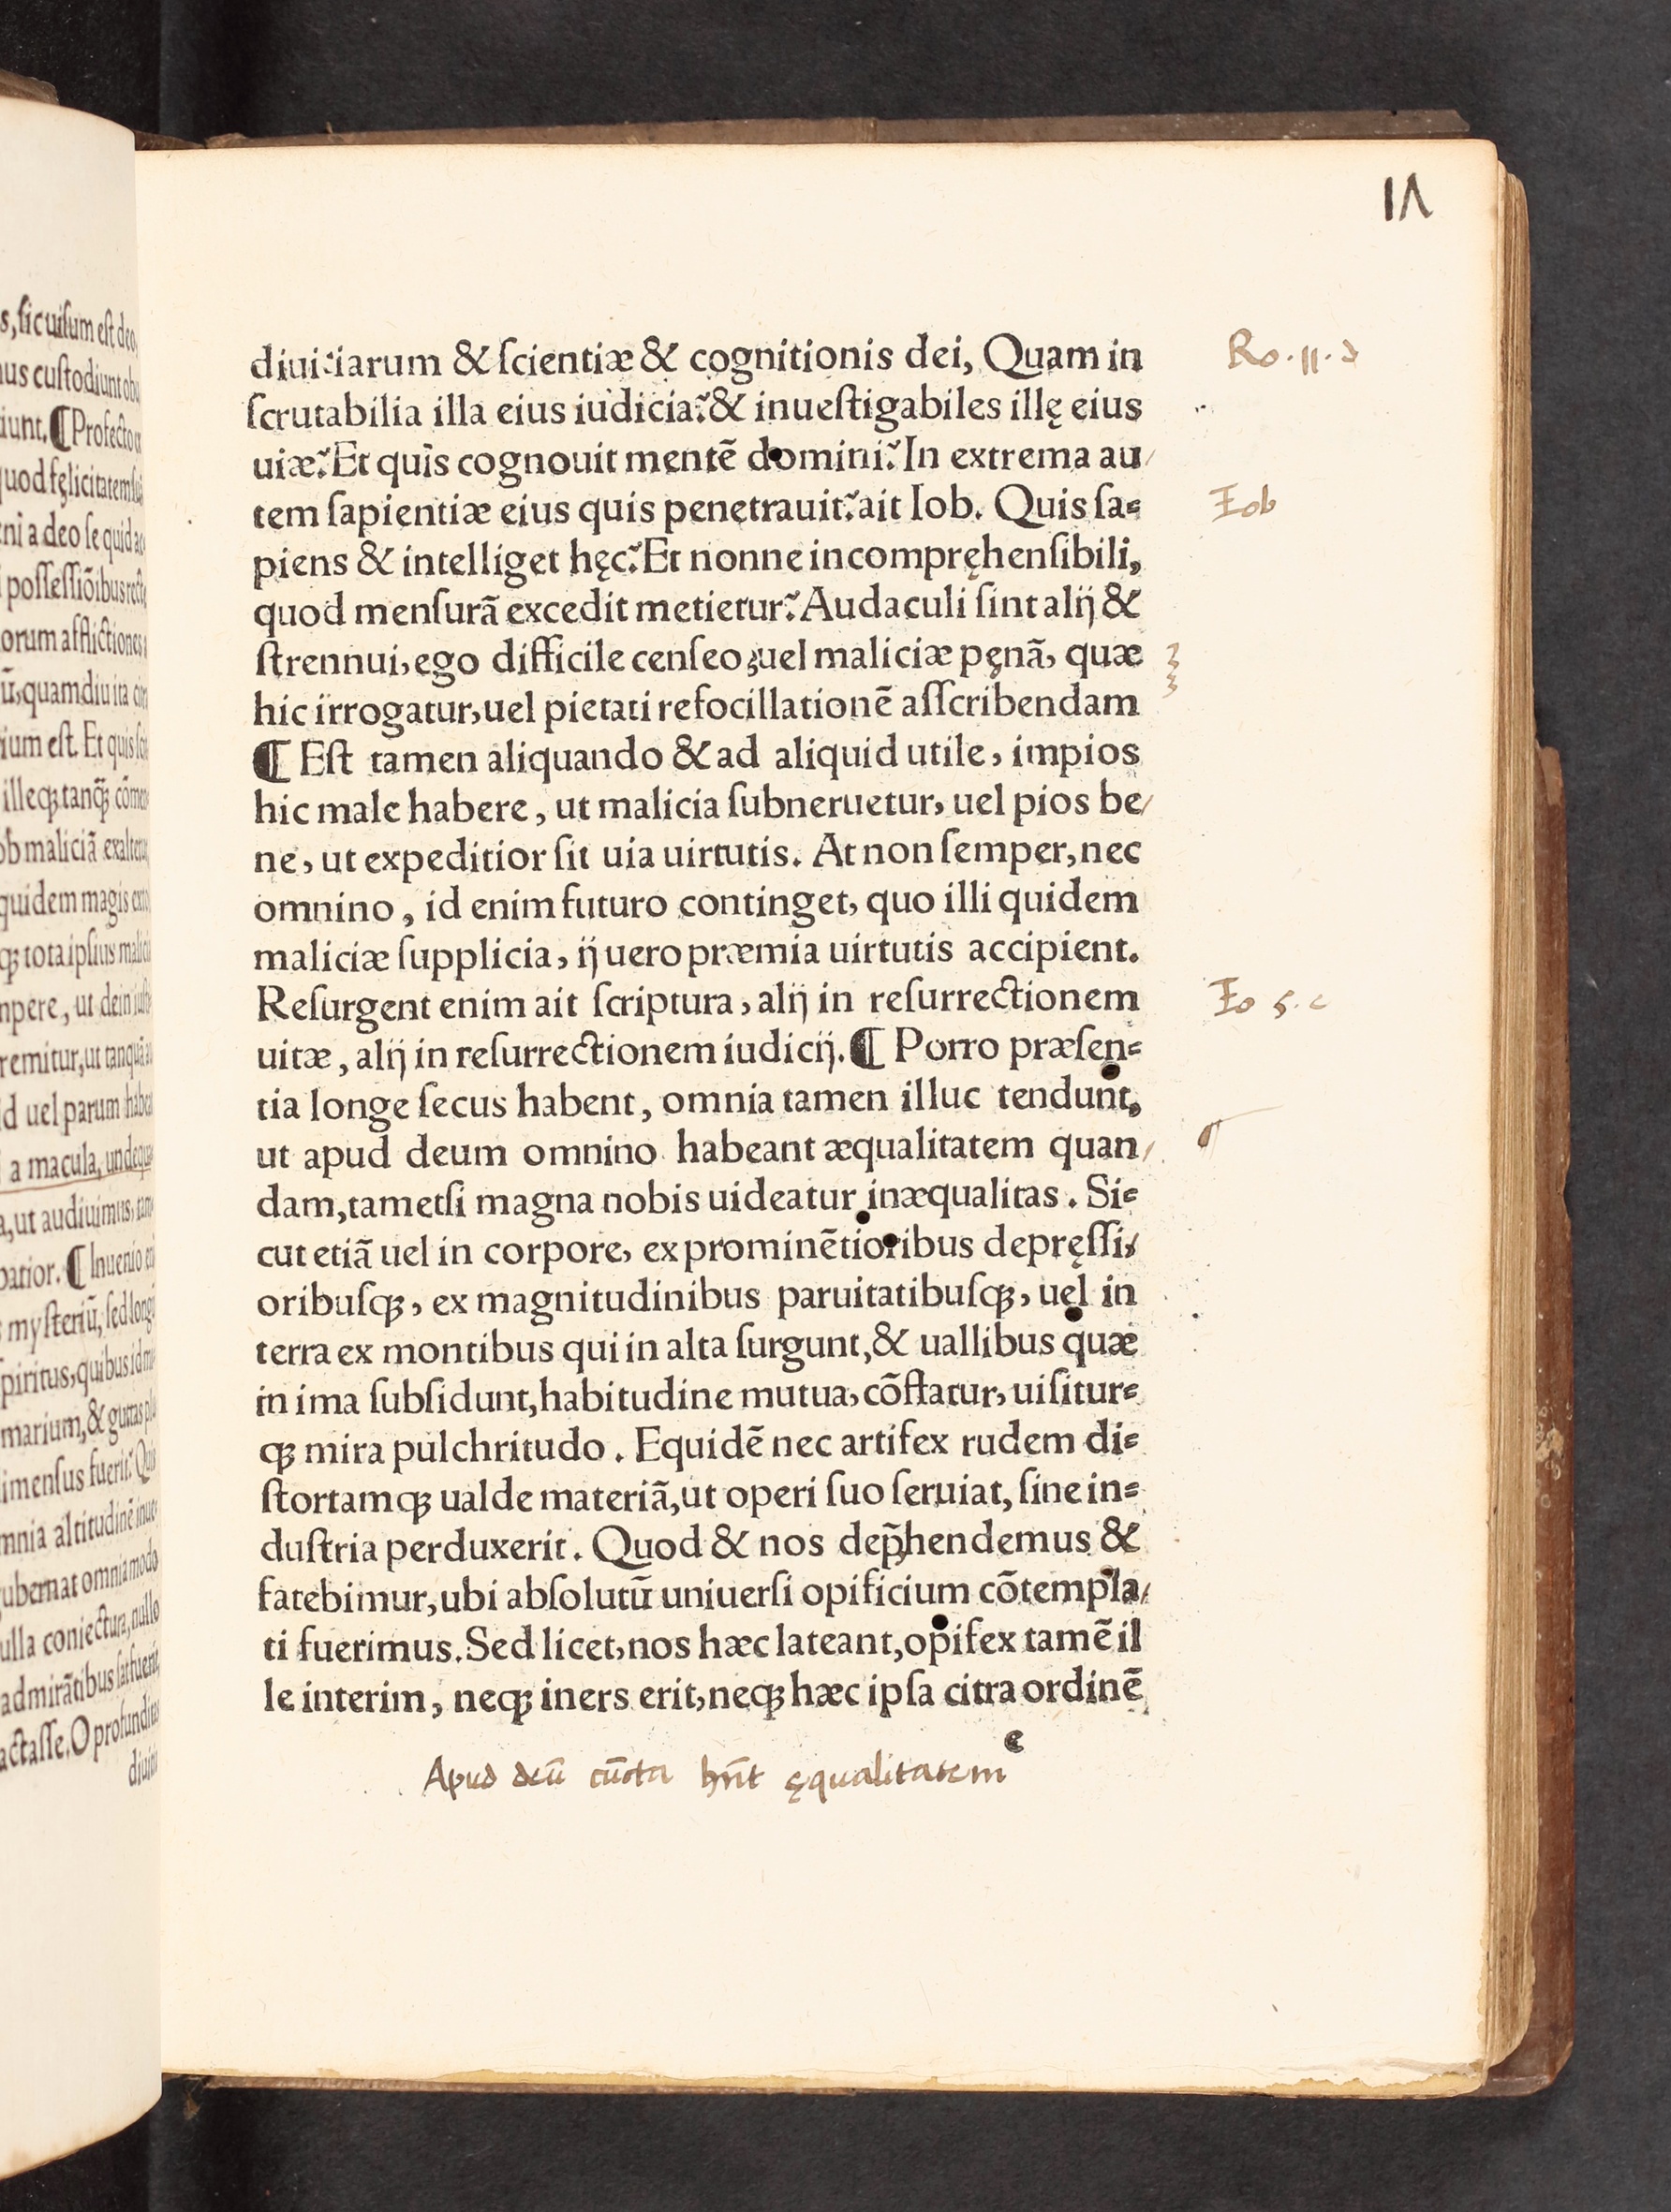 s, sic uisum est deo,
us custodiunt
iunt. ¶ Profecto
quod fęlicitatem
ni a deo se quid
possessiõibus
orum afflictiones
ũ, quamdiu ita
ium est. Et quis
illeqꝫ tanqꝫ
ob maliciã
quidem magis
qꝫ tota ipsius
mpere, ut dein
remitur, ut tanquã
d uel parum
a macula, undequa
a, ut audiuimus,
patior. ¶ Inuenio
mysteriũ, sed
spiritus, quibus
marium, & guttas
imensus fuerit?
mnia altitudinẽ
ubernat omnia modo
ulla coniectura, nullo
admirãtibus sat fuerit
actasse. O profunditas
18
diuitiarum & scientiæ & cognitionis dei, Quam in
ſcrutabilia illa eius iudicia? & inueſtigabiles illę eius
uiæ? Et quis cognouit mentẽ domini? In extrema au/
tem ſapientiæ eius quis penetrauit? ait Iob. Quis ſa=
piens & intelliget hęc? Et nonne incompręhenſibili,
quod menſurã excedit metietur? Audaculi ſint alij &
ſtrennui, ego difficile cenſeo, uel maliciæ pęnã, quæ
hic irrogatur, uel pietati refocillationẽ aſſcribendam
¶ Eſt tamen aliquando & ad aliquid utile, impios
hic male habere, ut malicia ſubneruetur, uel pios be/
ne, ut expeditior ſit uia uirtutis. At non ſemper, nec
omnino, id enim futuro continget, quo illi quidem
maliciæ ſupplicia, ij uero præmia uirtutis accipient.
Reſurgent enim ait ſcriptura, alij in reſurrectionem
uitæ, alij in reſurrectionem iudicij. ¶ Porro præſen=
tia longe ſecus habent, omnia tamen illuc tendunt,
ut apud deum omnino habeant æqualitatem quan/
dam, tametſi magna nobis uideatur inæqualitas. Si=
cut etiã uel in corpore, ex prominẽtioribus depręſſi/
oribuſqꝫ, ex magnitudinibus paruitatibuſqꝫ, uel in
terra ex montibus qui in alta ſurgunt, & uallibus quæ
in ima ſubſidunt, habitudine mutua, cõſtatur, uiſitur=
qꝫ mira pulchritudo. Equidẽ nec artifex rudem di=
ſtortamqꝫ ualde materiã, ut operi ſuo ſeruiat, ſine in=
duſtria perduxerit. Quod & nos dep̃hendemus &
fatebimur, ubi abſolutũ uniuerſi opificium cõtempla/
ti fuerimus. Sed licet, nos hæc lateant, opifex tamẽ il
le interim, neqꝫ iners erit, neqꝫ hæc ipſa citra ordinẽ
c
Apud deũ cũcta hñt ęqualitatem
Ro. 11. d
Iob
Io 5. c